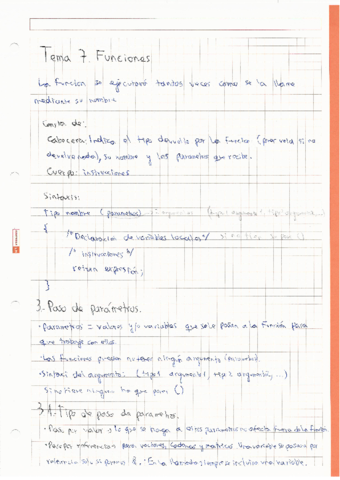 Tema 7. Funciones
La función se ejecutará tantas veces como se la llame
mediante su nombre
Consta de:
Cabecera: Indica el tipo devuelto por la función (pner void si no
devuelve nada), su nombre y los parámetros que recibe.
Cuerpo: instrucciones
Sintaxis:
Tipo nombre (parametros)
{
/* Declaración de variables locales */
/* Instrucciones */
return expresión;
}
3. Paso de parámetros.
· Parametros = valores y/o variables que se le pasan a la función para
que trabaje con ellos
· Las funciones pueden no tener ningún argumento
· Sintaxis del argumento: (tipo1 argumento1, tipo2 argumento2, ...)
si no tiene ninguno ()
3.1. Tipo de paso de parametros.
· Paso por valor: lo que se haga a estos parametros no afecta fuera de la función
· Paso por referencia: para vectores, cadenas y matrices. Una variable se pasará por
referencia si se pone &. En la llamada siempre se incluirá una variable.